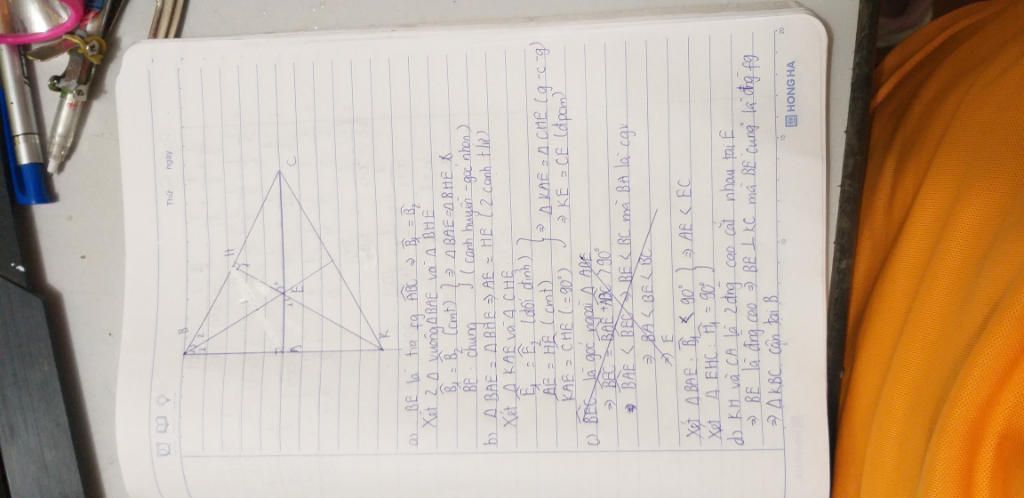 Thứ ngày
B
H
C
E
A
K
a) BE là tia fg ABC ⇒ B̂₁ = B̂₂
Xét 2 Δ vuông ΔBAE và ΔBHE
B̂₁ = B̂₂ (cmt)
BE chung
} ⇒ ΔBAE = ΔBHE
(cạnh huyền - góc nhọn)
b) ΔBAE = ΔBHE ⇒ AE = HE (2 cạnh t/ư)
Xét Δ KAE và Δ CHE
Ê₁ = Ê₂ (đối đỉnh)
AE = HE (cmt)
KAE = CHE (=90°)
} ⇒ ΔKAE = ΔCHE (g-c-g)
⇒ KE = CE (đpcm)
c) BEC là góc ngoài Δ ABE
⇒ BEC = BAE + ABE > 90°
⇒ BAE < BEC ⇒ BE < BC mà BA là cgv
⇒ BA < BE < BC
⇒ E
Xét ΔBAE: < 90°
Xét Δ EHC Ĥ₁ = 90°
} ⇒ AE < EC
d) KH và CA là 2 đg cao cắt nhau tại E
⇒ BE là đường cao ⇒ BE ⊥ KC mà BE cũng là đg fg
⇒ Δ KBC cân tại B
HONG HA